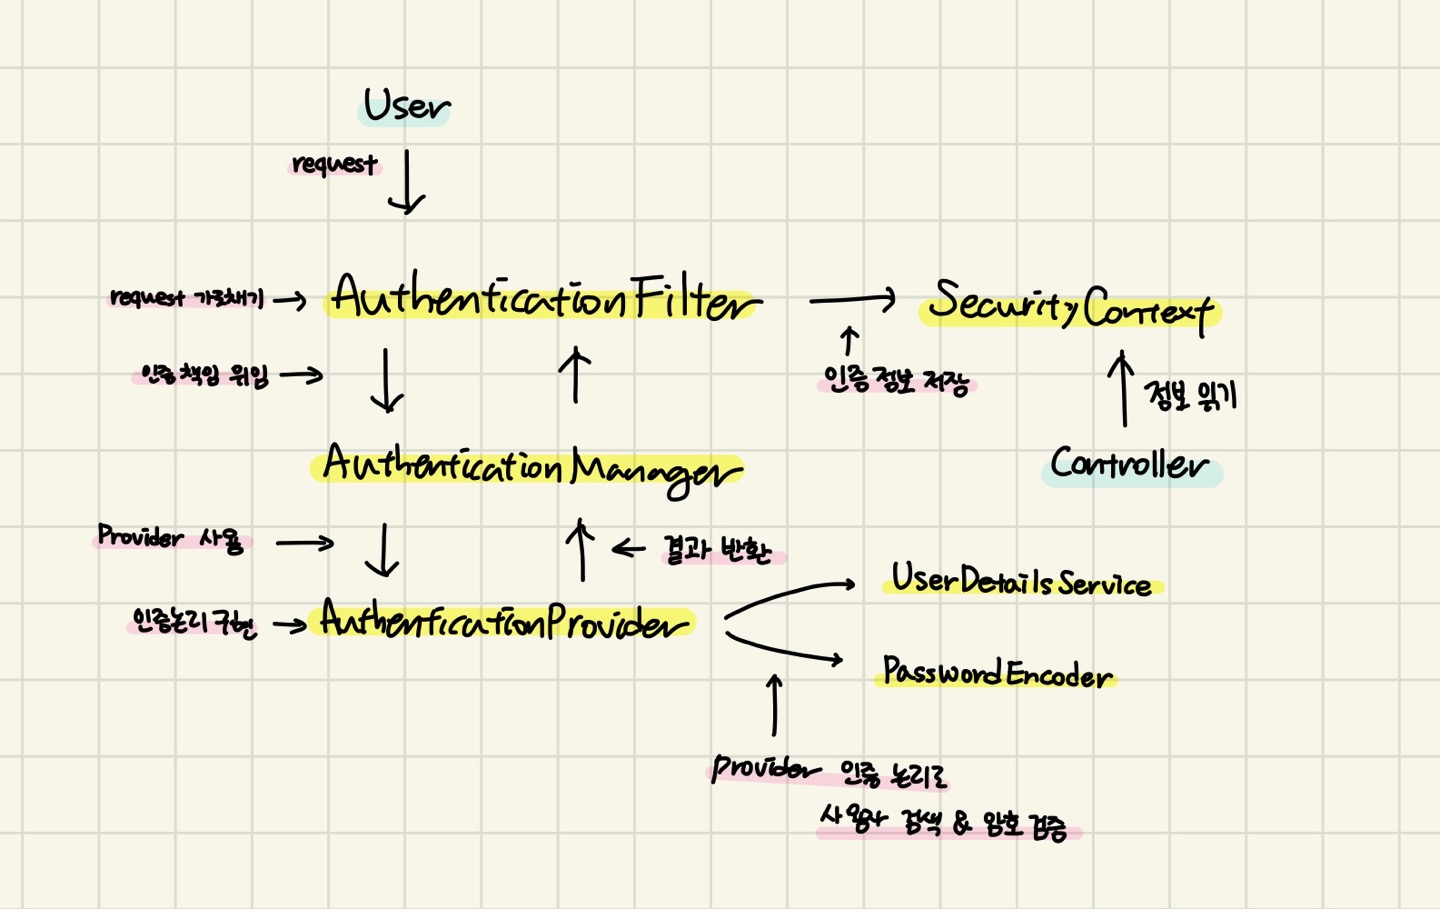 User
request
request 가로채기
AuthenticationFilter
SecurityContext
인증 책임 위임
인증 정보 저장
정보 읽기
AuthenticationManager
Controller
Provider 사용
결과 반환
UserDetailsService
인증논리 구현
AuthenticationProvider
PasswordEncoder
Provider 인증 논리로
사용자 검색 & 암호 검증